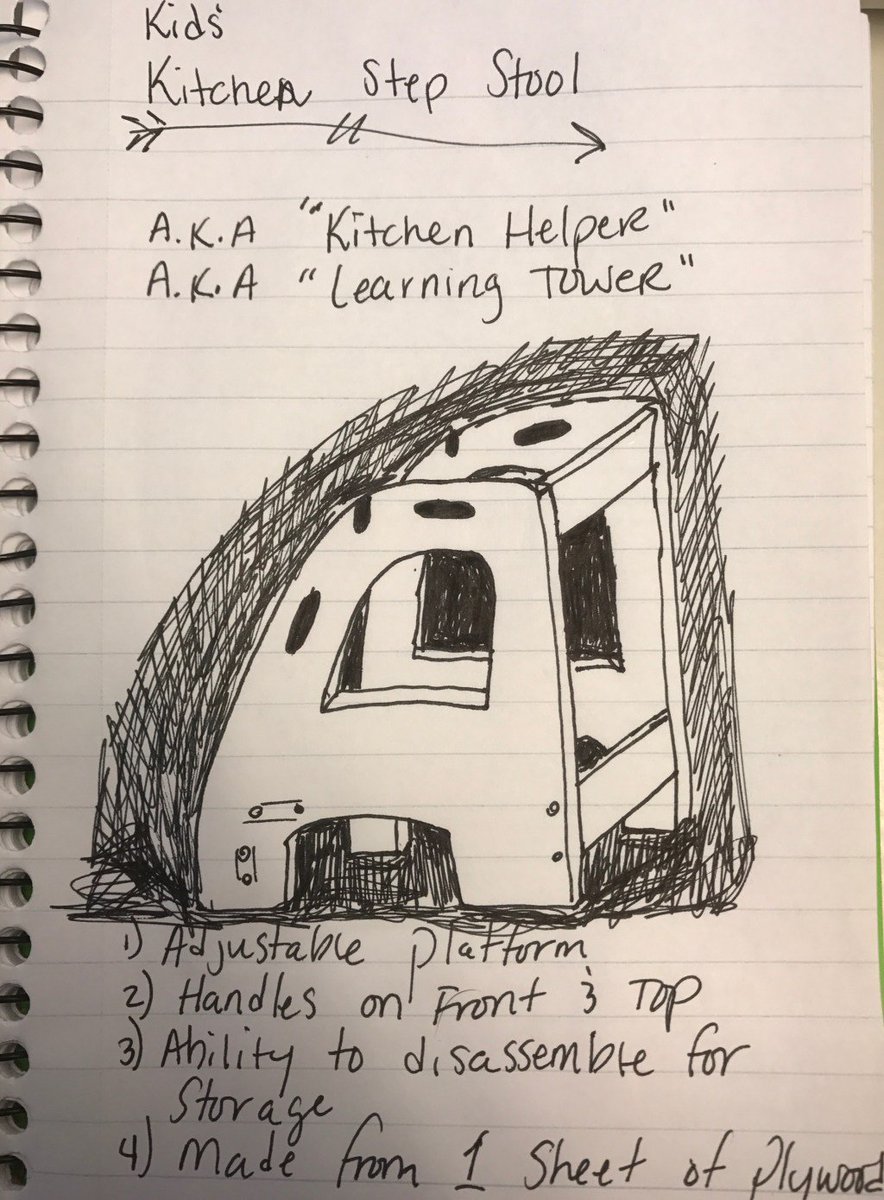 Kids'
Kitchen Step Stool
A.K.A "Kitchen Helper"
A.K.A "Learning Tower"
1) Adjustable platform
2) Handles on Front & Top
3) Ability to disassemble for
Storage
4) Made from 1 Sheet of Plywood